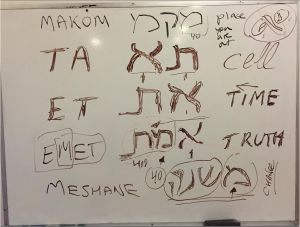 MAKOM מקמ 40 place you are at א
TA תא cell
ET את TIME
EMET אמת TRUTH
MESHANE 40 משנה CHANGE